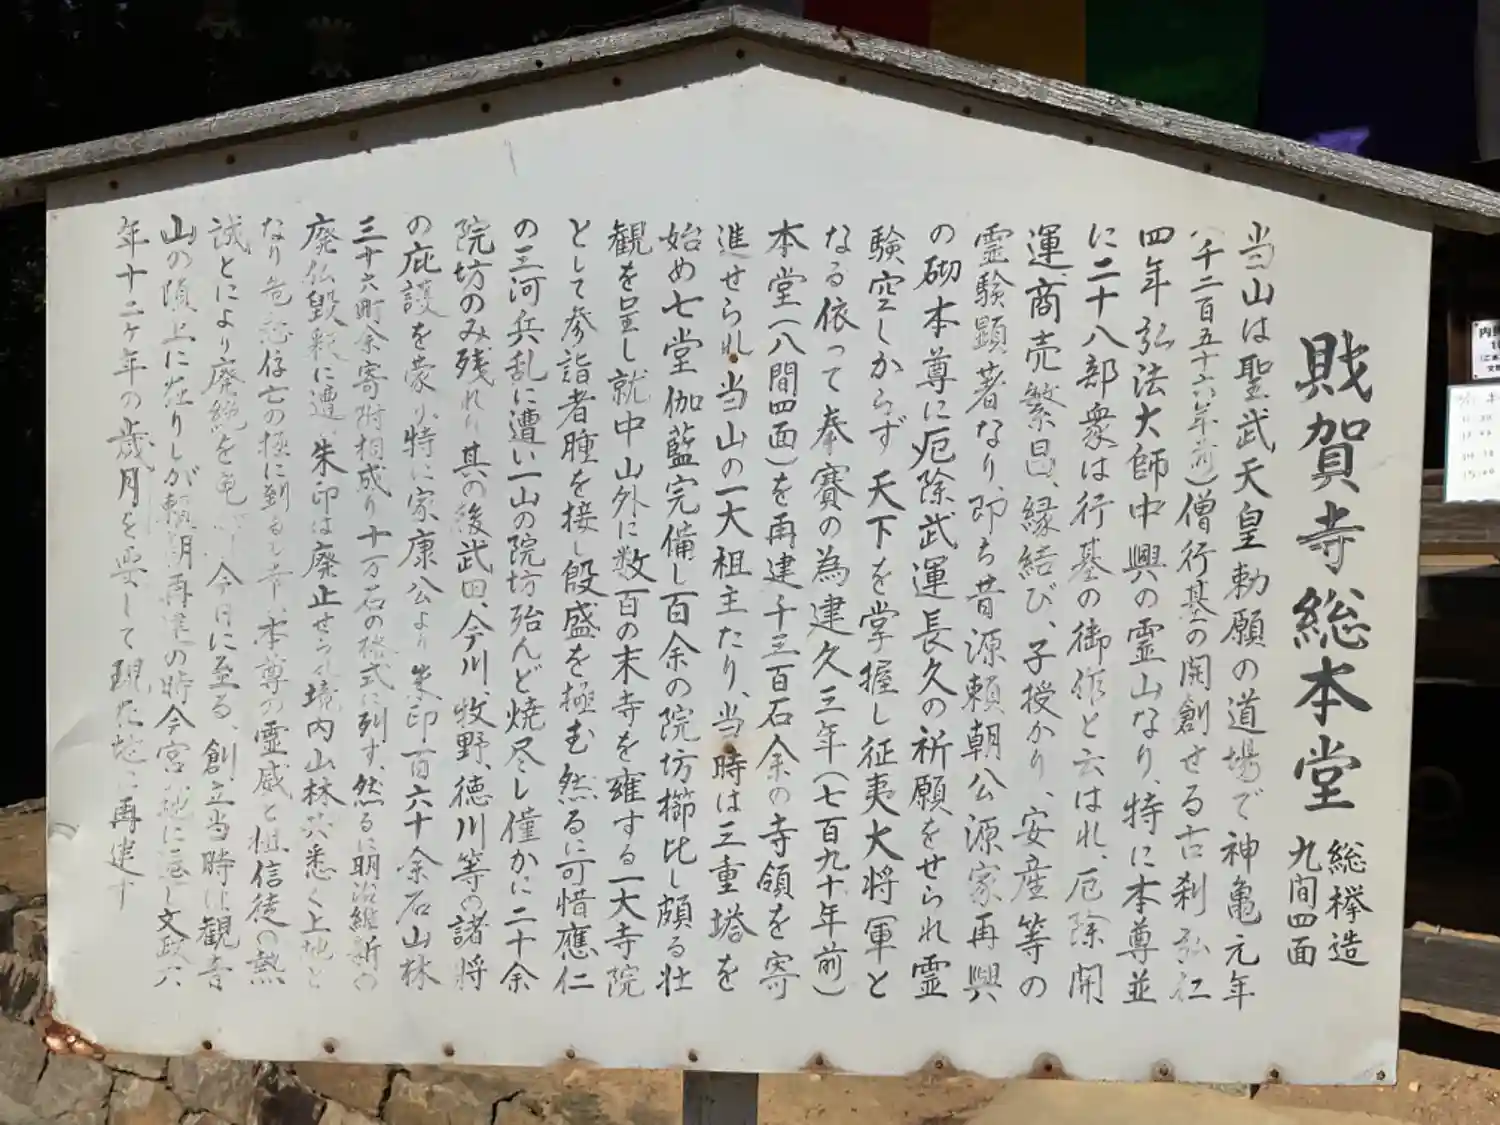 財賀寺総本堂 総欅造 九間四面
当山は聖武天皇勅願の道場で神亀元年
(千二百五十六年前)僧行基の開創せる古刹弘仁
四年弘法大師中興の霊山なり、特に本尊並
に二十八部衆は行基の御作と云はれ、厄除開
運、商売繁昌、縁結び、子授かり、安産等の
霊験顕著なり、即ち昔源頼朝公源家再興
の砌本尊に厄除武運長久の祈願をせられ霊
験空しからず天下を掌握し征夷大将軍と
なる依って奉賽の為建久三年(七百九十年前)
本堂(八間四面)を再建千三百石余の寺領を寄
進せられ当山の一大祖主たり、当時は三重塔を
始め七堂伽藍完備し百余の院坊櫛比し頗る壮
観を呈し就中山外に数百の末寺を雍する一大寺院
として参詣者踵を接し殷盛を極む然るに可惜應仁
の三河兵乱に遭い一山の院坊殆んど焼尽し僅かに二十余
院坊のみ残れり其の後武田、今川、牧野、徳川等の諸将
の庇護を蒙り、特に家康公より朱印百六十余石山林
三十六町余寄附相成り十万石の格式に列す、然るに明治維新の
廃仏毀釈に遭い朱印は廃止せられ境内山林共悉く上地と
なり危急存亡の極に到るも幸い本尊の霊感と檀信徒の熱
誠とにより廃絶を免 今日に至る、創立当時は観音
山の頂上に在りしが頼朝再建の時今宮 地に遷し文政六
年十二ヶ年の歳月を要して現在地に再建す